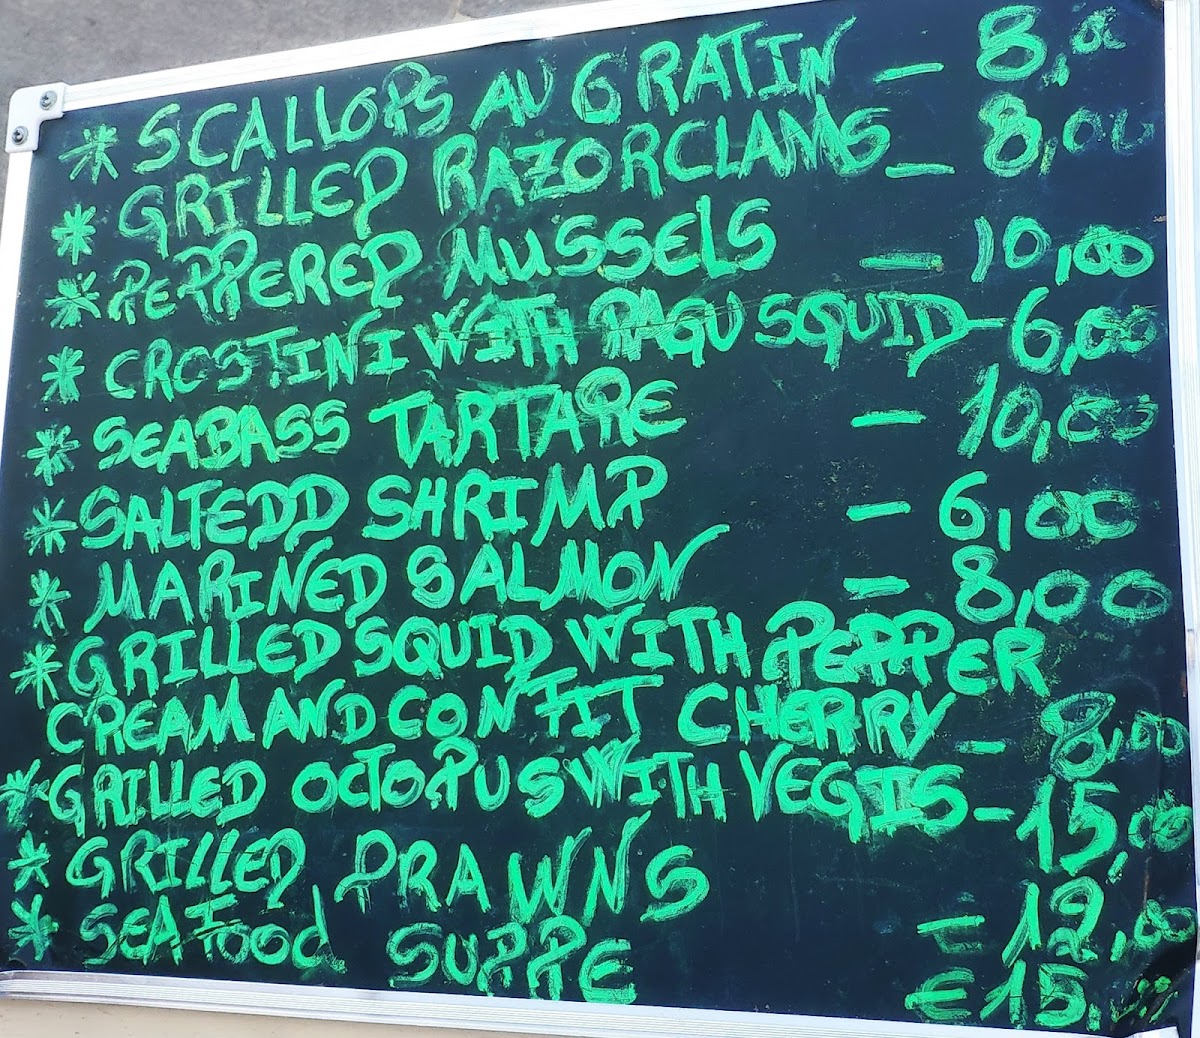 * SCALLOPS AU GRATIN - 8,00
* GRILLED RAZORCLAMS - 8,00
* PEPPERED MUSSELS - 10,00
* CROSTINI WITH RAGU SQUID - 6,00
* SEABASS TARTARE - 10,00
* SALTEDD SHRIMP - 6,00
* MARINED SALMON - 8,00
* GRILLED SQUID WITH PEPPER
CREAM AND CONFIT CHERRY - 8,00
* GRILLED OCTOPUS WITH VEGIS - 15,00
* GRILLED PRAWNS - 12,00
* SEAFOOD SUPPE €15,00